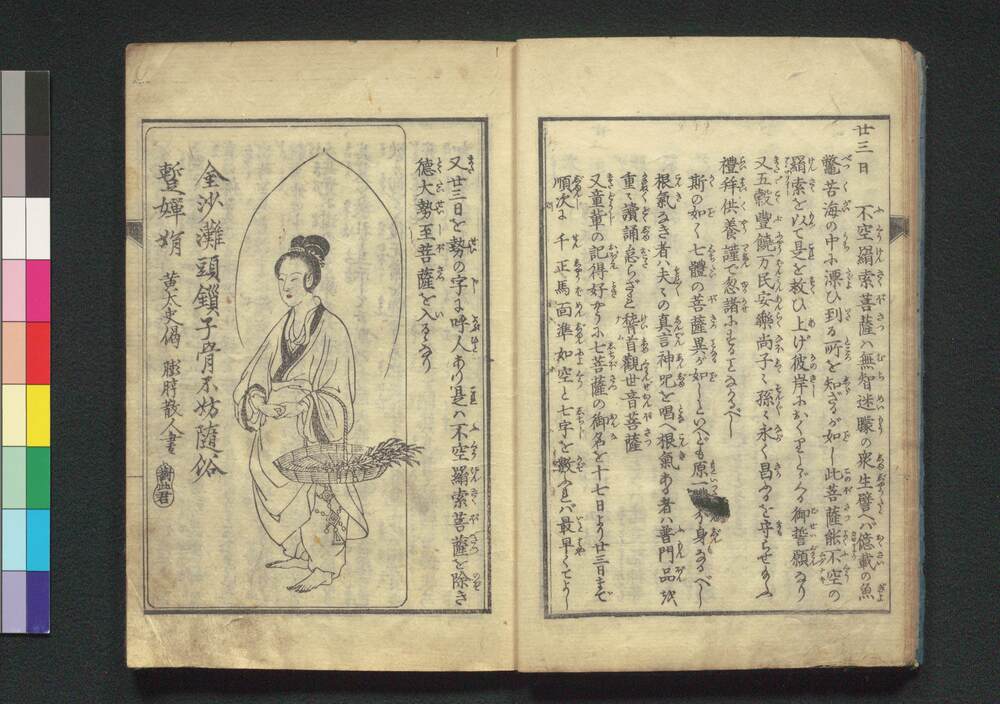 廿三日 不空羂索菩薩ハ無智迷矇の衆生譬へバ億載の魚
鼈苦海の中に漂ひ到る所を知ざるが如し此菩薩能不空の
羂索を以て是を救ひ上げ彼岸におくり玉ふ御誓願なり
又五穀豊饒万民安樂尚子々孫々永く昌るを守らせ玉ふ
禮拜供養謹で忽諸にすることなかるべし
斯の如く七體の菩薩異が如しといへども原一 分身なるべし
根氣なき者ハ夫々の真言神呪を唱へ根氣ある者ハ普門品を
重て讀誦怠らざれ稽首觀世音菩薩
又童蒙の記得好からふに七菩薩の御名を十七日より廿三日まで
順次に千正馬面準如空と七字を數ふれバ最早くてよし
又廿三日を勢の字に呼人あり是ハ不空羂索菩薩を除き
德大勢至菩薩を入るなり
金沙灘頭鎖子骨不妨隨俗
暫嬋娟 黄太史偈 膨脝散人書